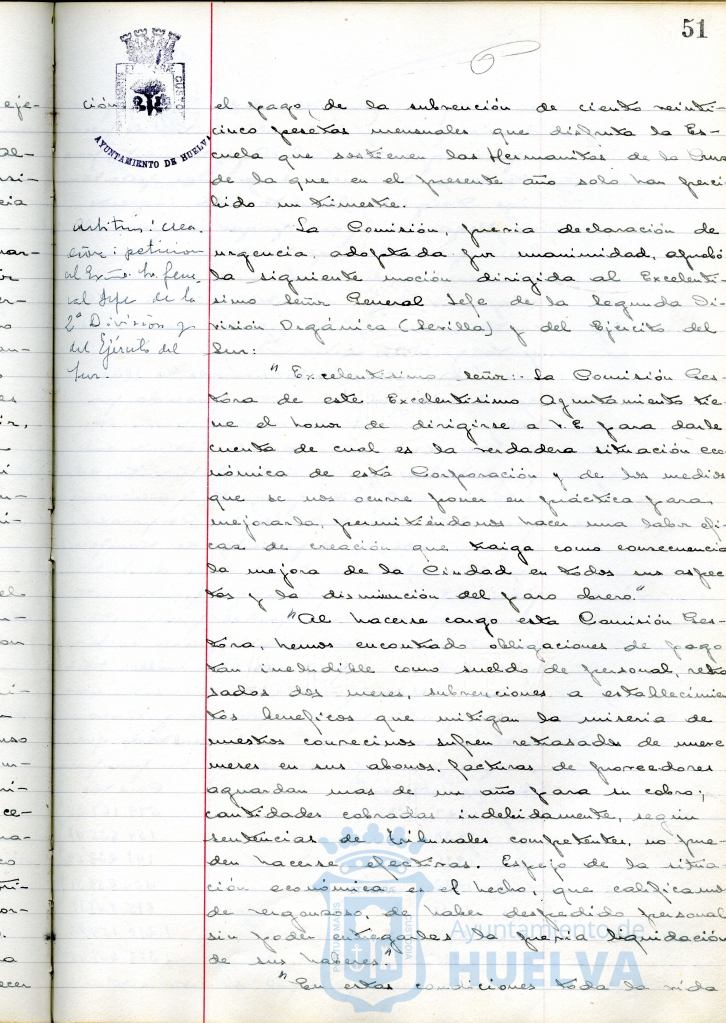 51
AYUNTAMIENTO DE HUELVA
ción
el pago, de la subvención de ciento veinti-
cinco pesetas mensuales que disfruta la Es-
cuela que sostienen las Hermanitas de la Cruz
de la que en el presente año solo han perci-
bido un trimestre.
Arbitrios: crea-
ción: petición
al Exmo. Sr. Gene-
ral Jefe de la
2ª División y
del Ejército del
Sur.
La Comisión, previa declaración de
urgencia, adoptada por unanimidad, aprobó
la siguiente moción dirigida al Excelentí-
simo Señor General Jefe de la Segunda Di-
visión Orgánica (Sevilla) y del Ejército del
Sur:
"Excelentísimo Señor: La Comisión Ges-
tora de este Excelentísimo Ayuntamiento tie-
ne el honor de dirigirse a V.E. para darle
cuenta de cual es la verdadera situación eco-
nómica de esta Corporación y de los medios
que se nos ocurre poner en práctica para
mejorarla, permitiéndonos hacer una labor efi-
caz de creación que traiga como consecuencia
la mejora de la Ciudad en todos sus aspec-
tos y la disminución del paro obrero."
"Al hacerse cargo esta Comisión Ges-
tora, hemos encontrado obligaciones de pago
tan ineludible como sueldo de personal, retra-
sados dos meses, subvenciones a establecimien-
tos beneficos que mitigan la miseria de
nuestros convecinos sufren retrasados de nueve
meses en sus abonos, facturas de proveedores
aguardan mas de un año para su cobro;
cantidades cobradas indebidamente, según
sentencias de Tribunales competentes, no pue-
den hacerse efectivas. Espejo de la situa-
ción económica es el hecho, que calificamos
de vergonzoso, de haber despedido personal
sin poder entregarles la previa liquidación
de sus haberes."
"En estas condiciones toda la vida
Ayuntamiento de
HUELVA